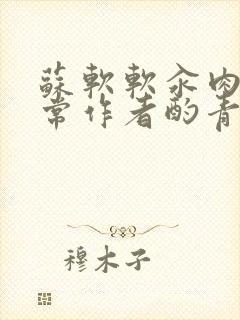 蘇軟軟汆肉
常作者酌青
穆木子